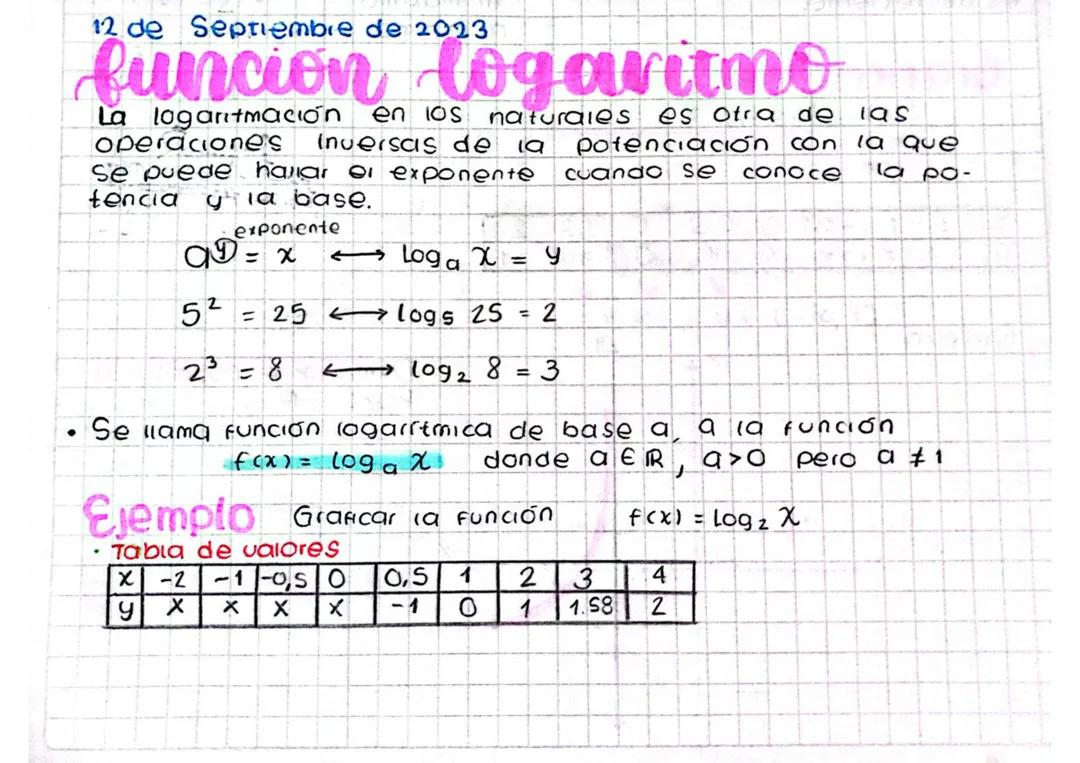 12 de Septiembre de 2023
función logaritmo
La logaritmación en los naturales es otra de las
operaciones inversas de la potenciación con la que
se puede hallar el exponente cuando se conoce la po-
tencia y la base.
exponente
a^y = x ⟷ Log_a x = y
5² = 25 ⟷ log₅ 25 = 2
2³ = 8 ⟷ log₂ 8 = 3
• Se llama función logarítmica de base a, a la función
f(x) = log_a x donde a ∈ ℝ, a>0 pero a ≠ 1
Ejemplo Graficar la función f(x) = Log₂ x
• Tabla de valores
x -2 -1 -0,5 0 0,5 1 2 3 4
y x x x x -1 0 1 1.58 2